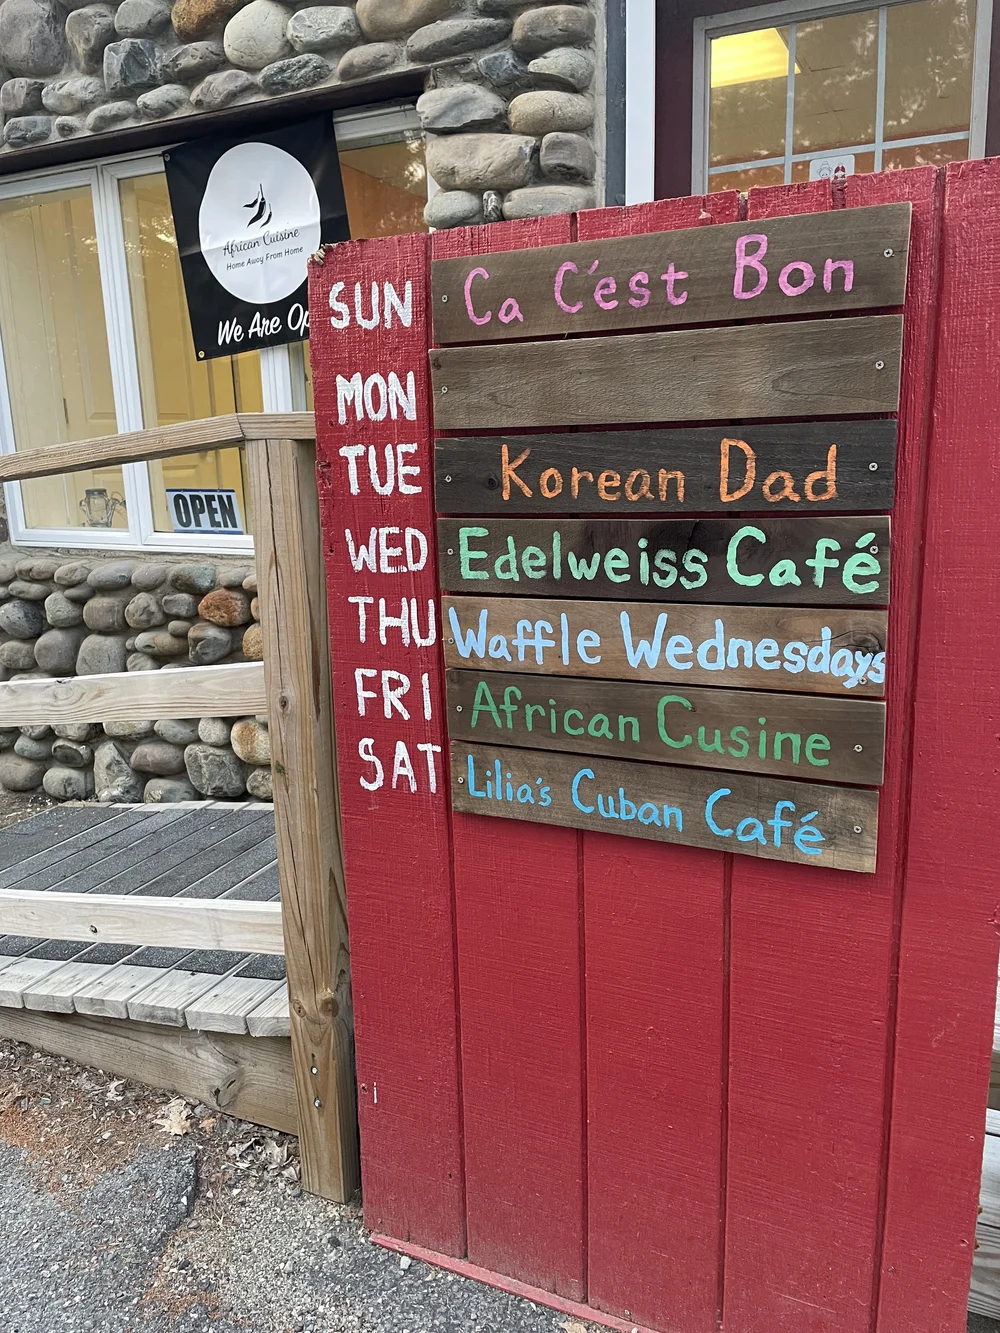 African Cuisine
Home Away From Home
We Are Op
OPEN
SUN Ca C'est Bon
MON
TUE Korean Dad
WED Edelweiss Café
THU Waffle Wednesdays
FRI African Cusine
SAT Lilia's Cuban Café